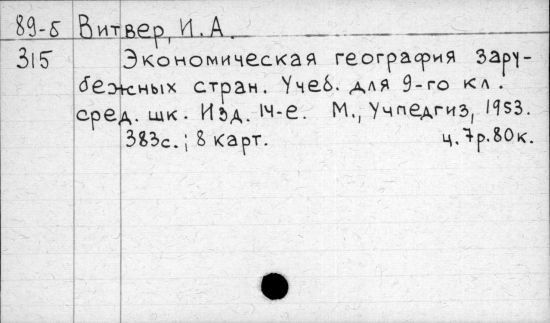 89-б Витвер, И.А.
315 Экономическая география зару-
бежных стран. Учеб. для 9-го кл.
сред. шк. Изд. 14-е. М., Учпедгиз, 1953.
383с.; 8 карт. ц. 7р.80к.